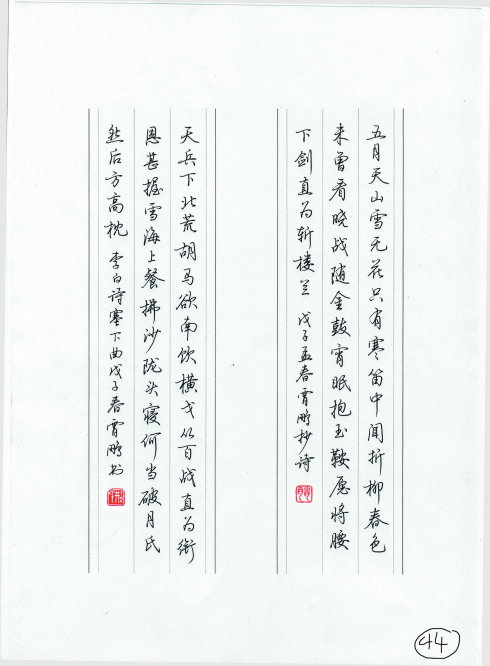 五月天山雪无花只有寒笛中闻折柳春色
未曾看晓战随金鼓宵眠抱玉鞍愿将腰
下剑直为斩楼兰 戊子孟春霄鹏抄诗
天兵下北荒胡马欲南饮横戈从百战直为衔
恩甚握雪海上餐拂沙陇头寝何当破月氏
然后方高枕 李白诗塞下曲戊子春霄鹏书
44